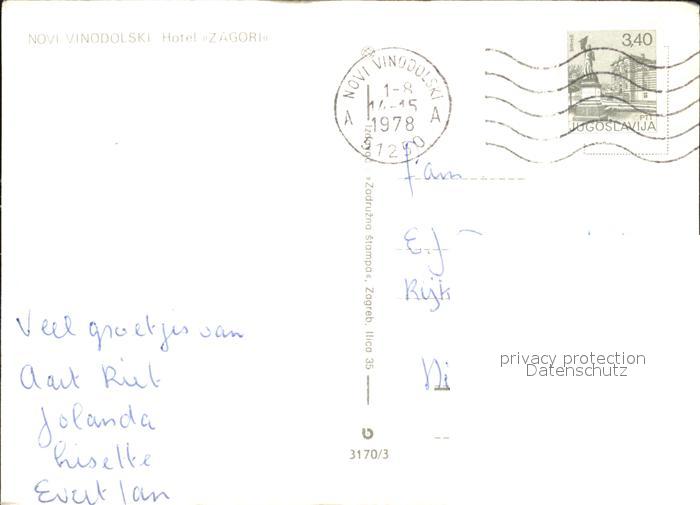 NOVI VINODOLSKI Hotel »ZAGORI«
NOVI VINODOLSKI
1-8
14-15
1978
A A
51250
3,40
PTT
JUGOSLAVIJA
Fam
E. J
Rijk
Ni
privacy protection
Datenschutz
»Zadružna štampa«, Zagreb, Ilica 35
3170/3
Veel groetjes van
Aart Riet
Jolanda
Lisette
Evert Jan